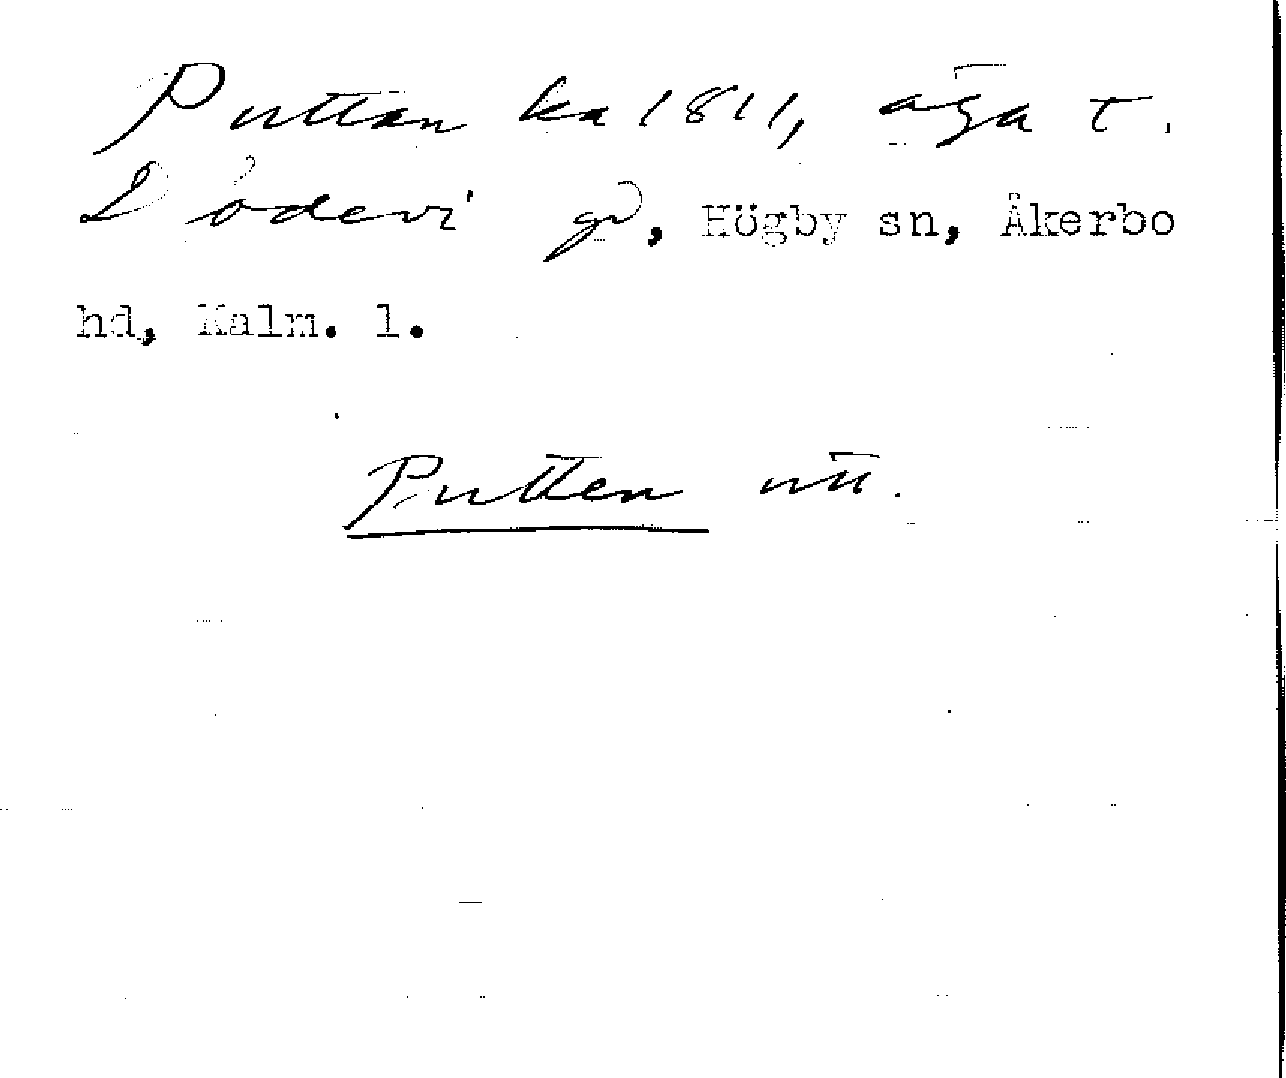 Puttan ka 1811, äga t.
Dödevi gd, Högby sn, Åkerbo
hd, Kalm. l.
Putten utt.